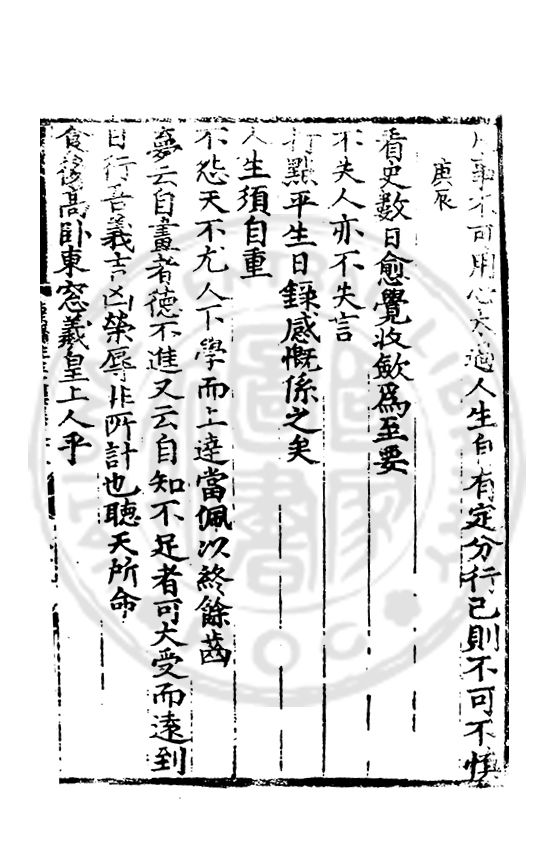 凡事不可用心太過人生自有定分行己則不可不慎
庚辰
看史數日愈覺收斂為至要
不失人亦不失言
打點平生日錄感慨係之矣
人生須自重
不怨天不尤人下學而上達當佩以終餘齒
夢云自畫者德不進又云自知不足者可大受而遠到
日行吾義吉凶榮辱非所計也聽天所命
食後高卧東窓羲皇上人乎